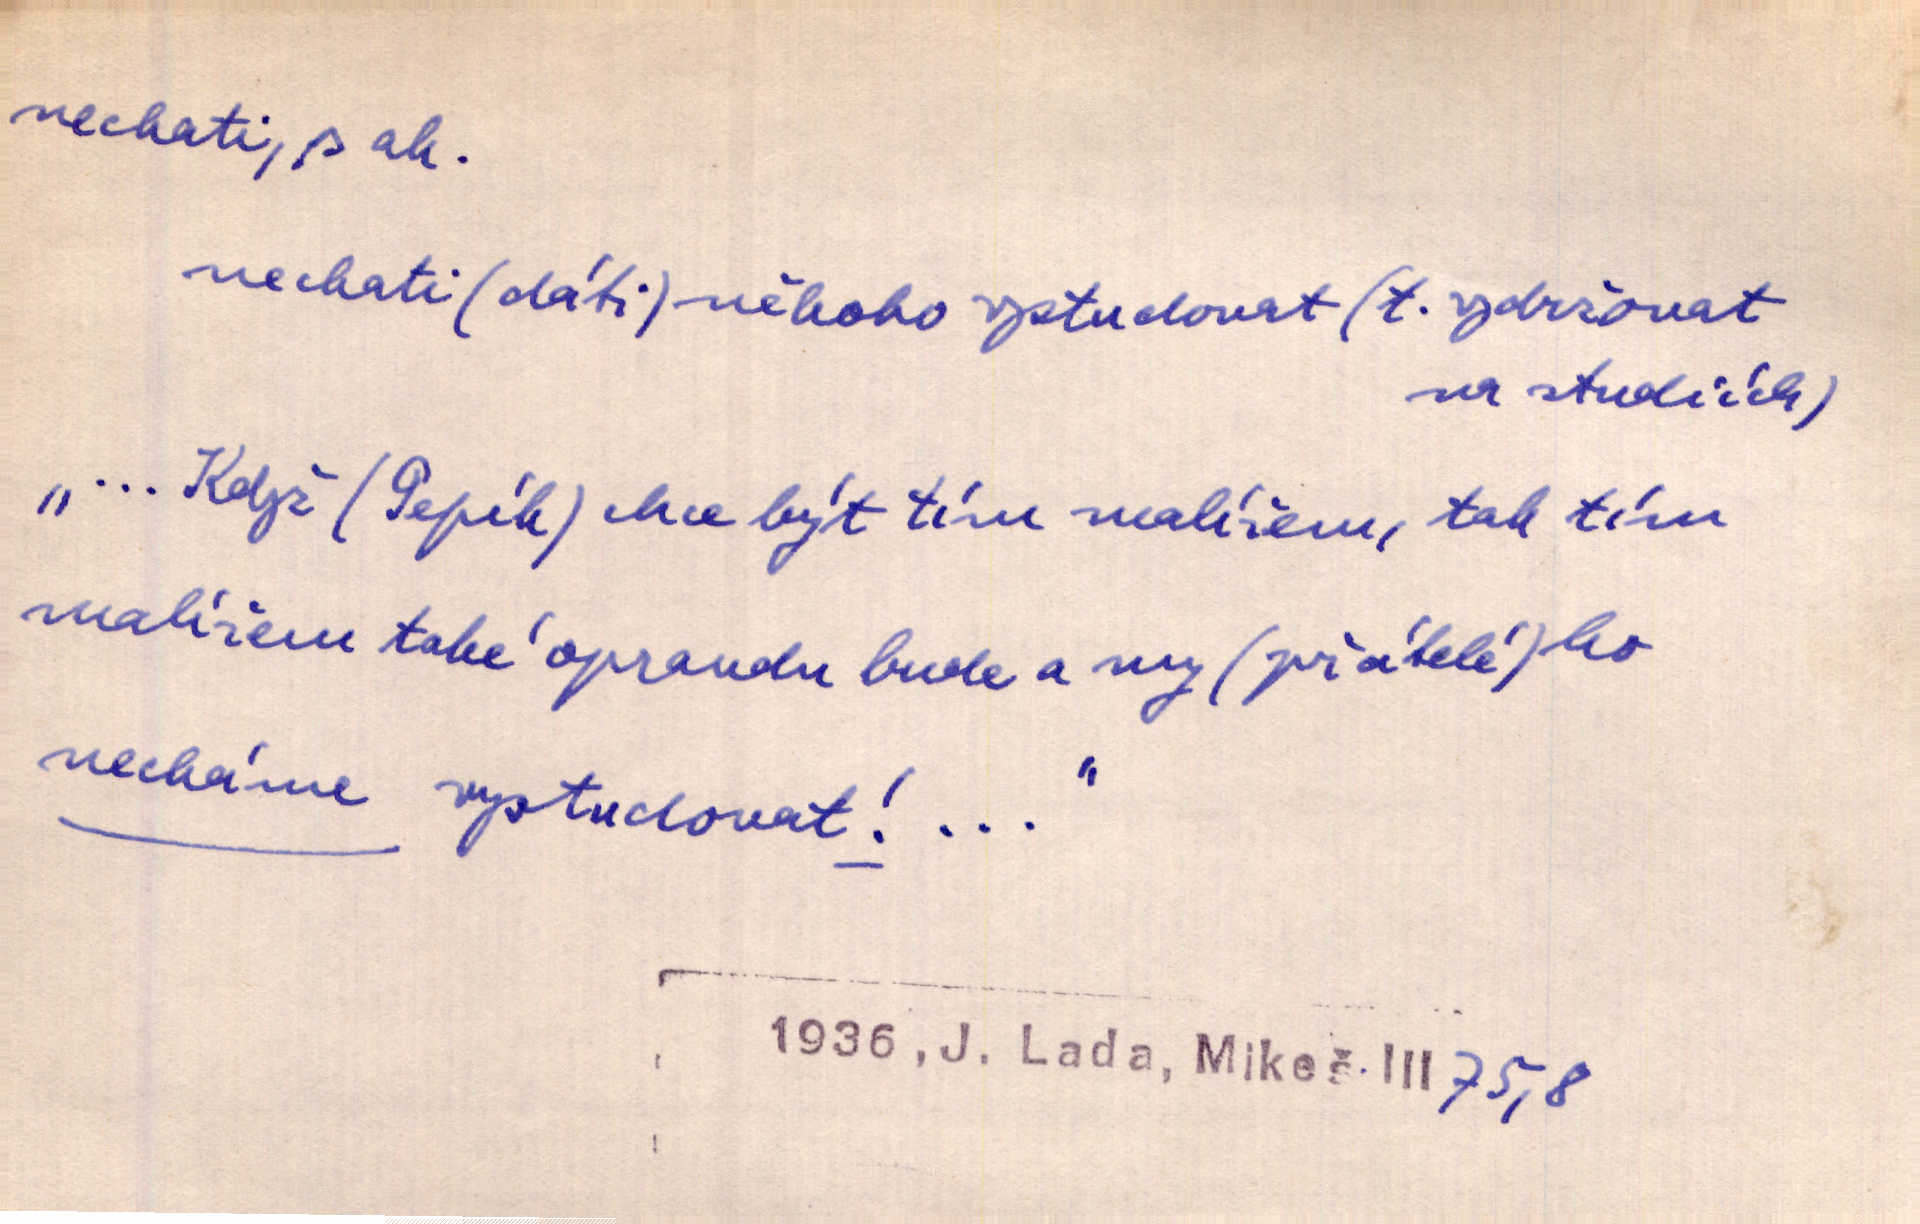 nechati, s ak.
nechati (dáti) někoho vystudovat (t. vydržovat
na studiích)
„... Když (Pepík) chce být tím malířem, tak tím
malířem také opravdu bude a my (přátelé) ho
necháme vystudovat! ..."
1936, J. Lada, Mikeš III 75,8